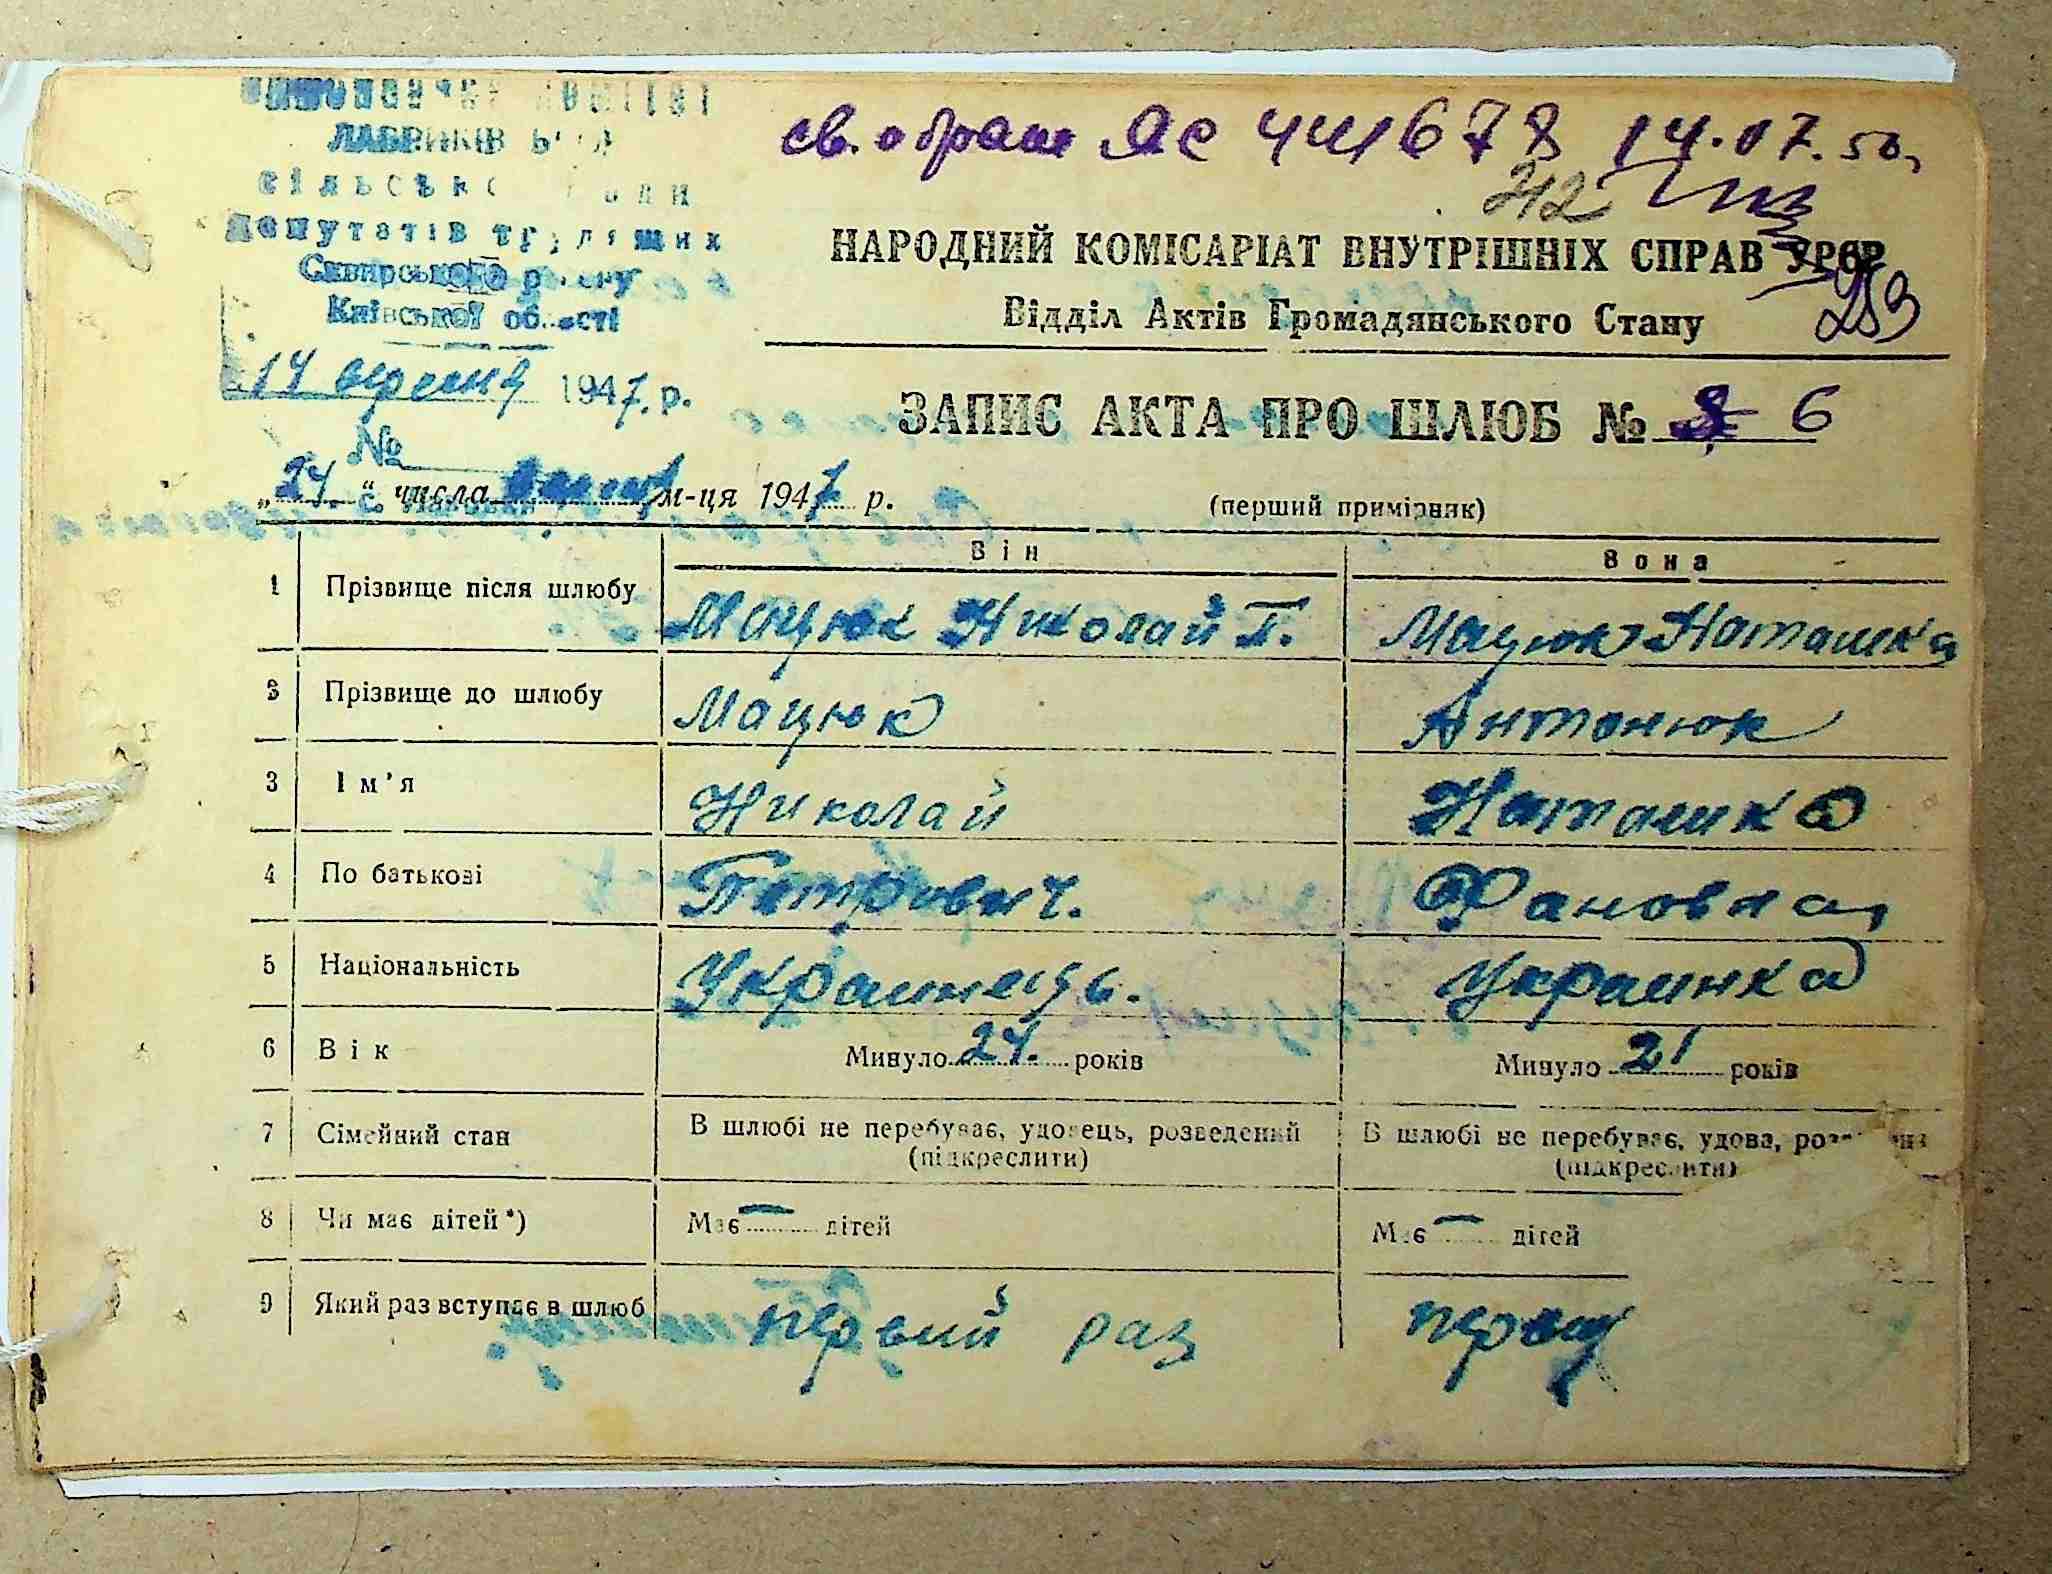 ЛАБРИКІВ
депутатів трудящих
Сквирського р
Київської області
14 вересня 1947. р.
№
св. о браке ЯС 441678 14.07.50,
242
НАРОДНИЙ КОМІСАРІАТ ВНУТРІШНІХ СПРАВ УРСР
Відділ Актів Громадянського Стану
253
ЗАПИС АКТА ПРО ШЛЮБ № 6
„24.“ числа м-ця 1947 р.
(перший примірник)
Він Вона
1 Прізвище після шлюбу Мацюк Николай П. Мацюк Наташка
2 Прізвище до шлюбу Мацюк Антонюк
3 Ім'я Николай Наташка
4 По батькові Петрович. Фановна
5 Національність Украинець. Украинка
6 Вік Минуло 24. років Минуло 21 років
7 Сімейний стан В шлюбі не перебуває, удовець, розведений (підкреслити) В шлюбі не перебуває, удова, (підкреслити)
8 Чи має дітей*) Має — дітей Має — дітей
9 Який раз вступає в шлюб первий раз первий